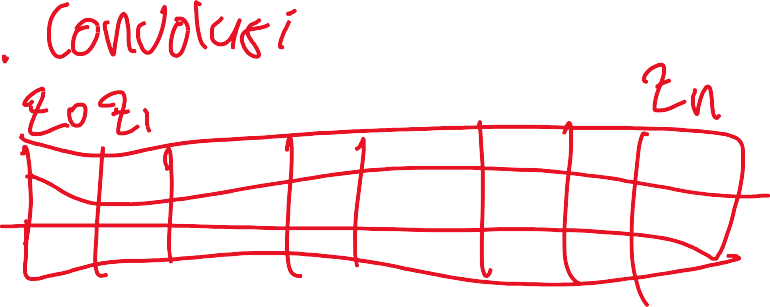 . Convolusi
z0 z1 zn